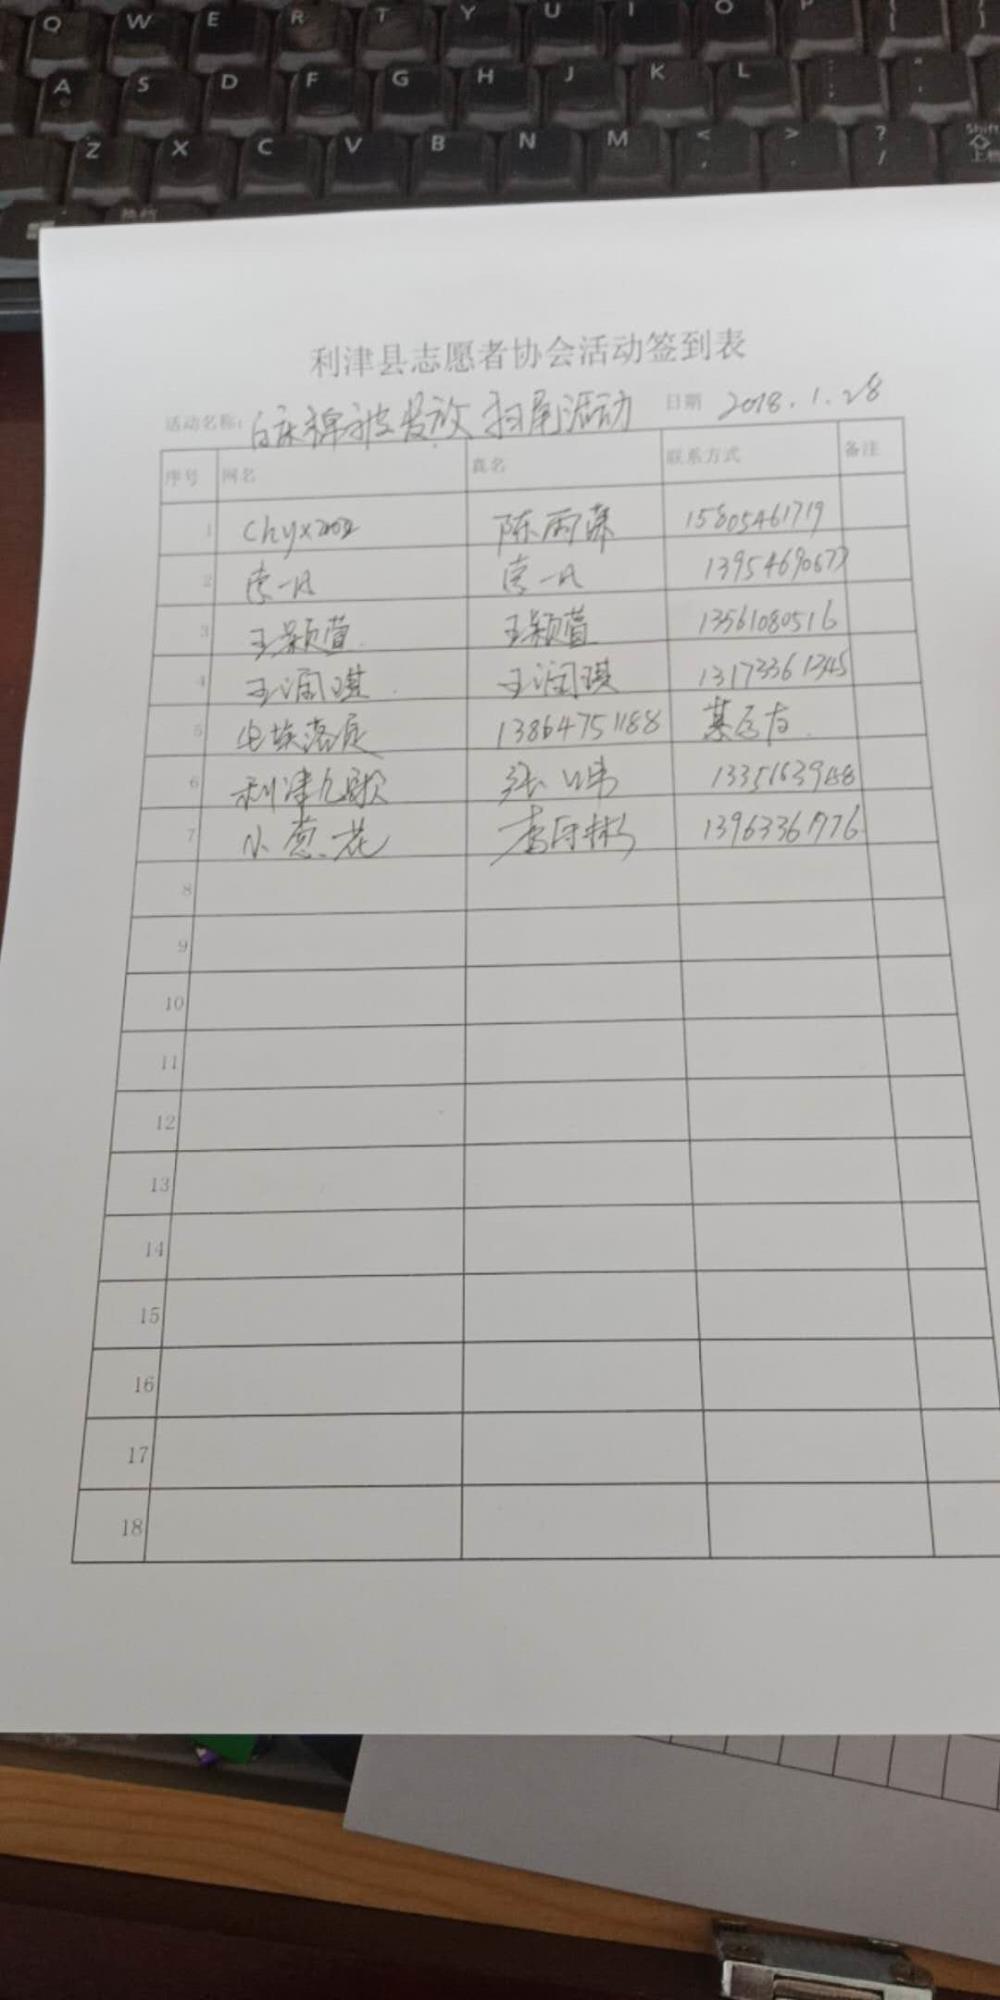 Q W E R T Y U I O P { [ } ]
A S D F G H J K L : ; " '
Z X C V B N M < , > . ? / Shift
利津县志愿者协会活动签到表
活动名称: 棉被发放扫尾活动 日期 2018.1.28
序号 网名 真名 联系方式 备注
1 陈雨 15805461719
2 一凡 一凡 13954690677
3 王颖萱 王颖萱 13561080516
4 王润琪 王润琪 13173361345
5 尘埃落定 13864751188
6 利津九歌 张 13351163948
7 小葱花 李
8
9
10
11
12
13
14
15
16
17
18